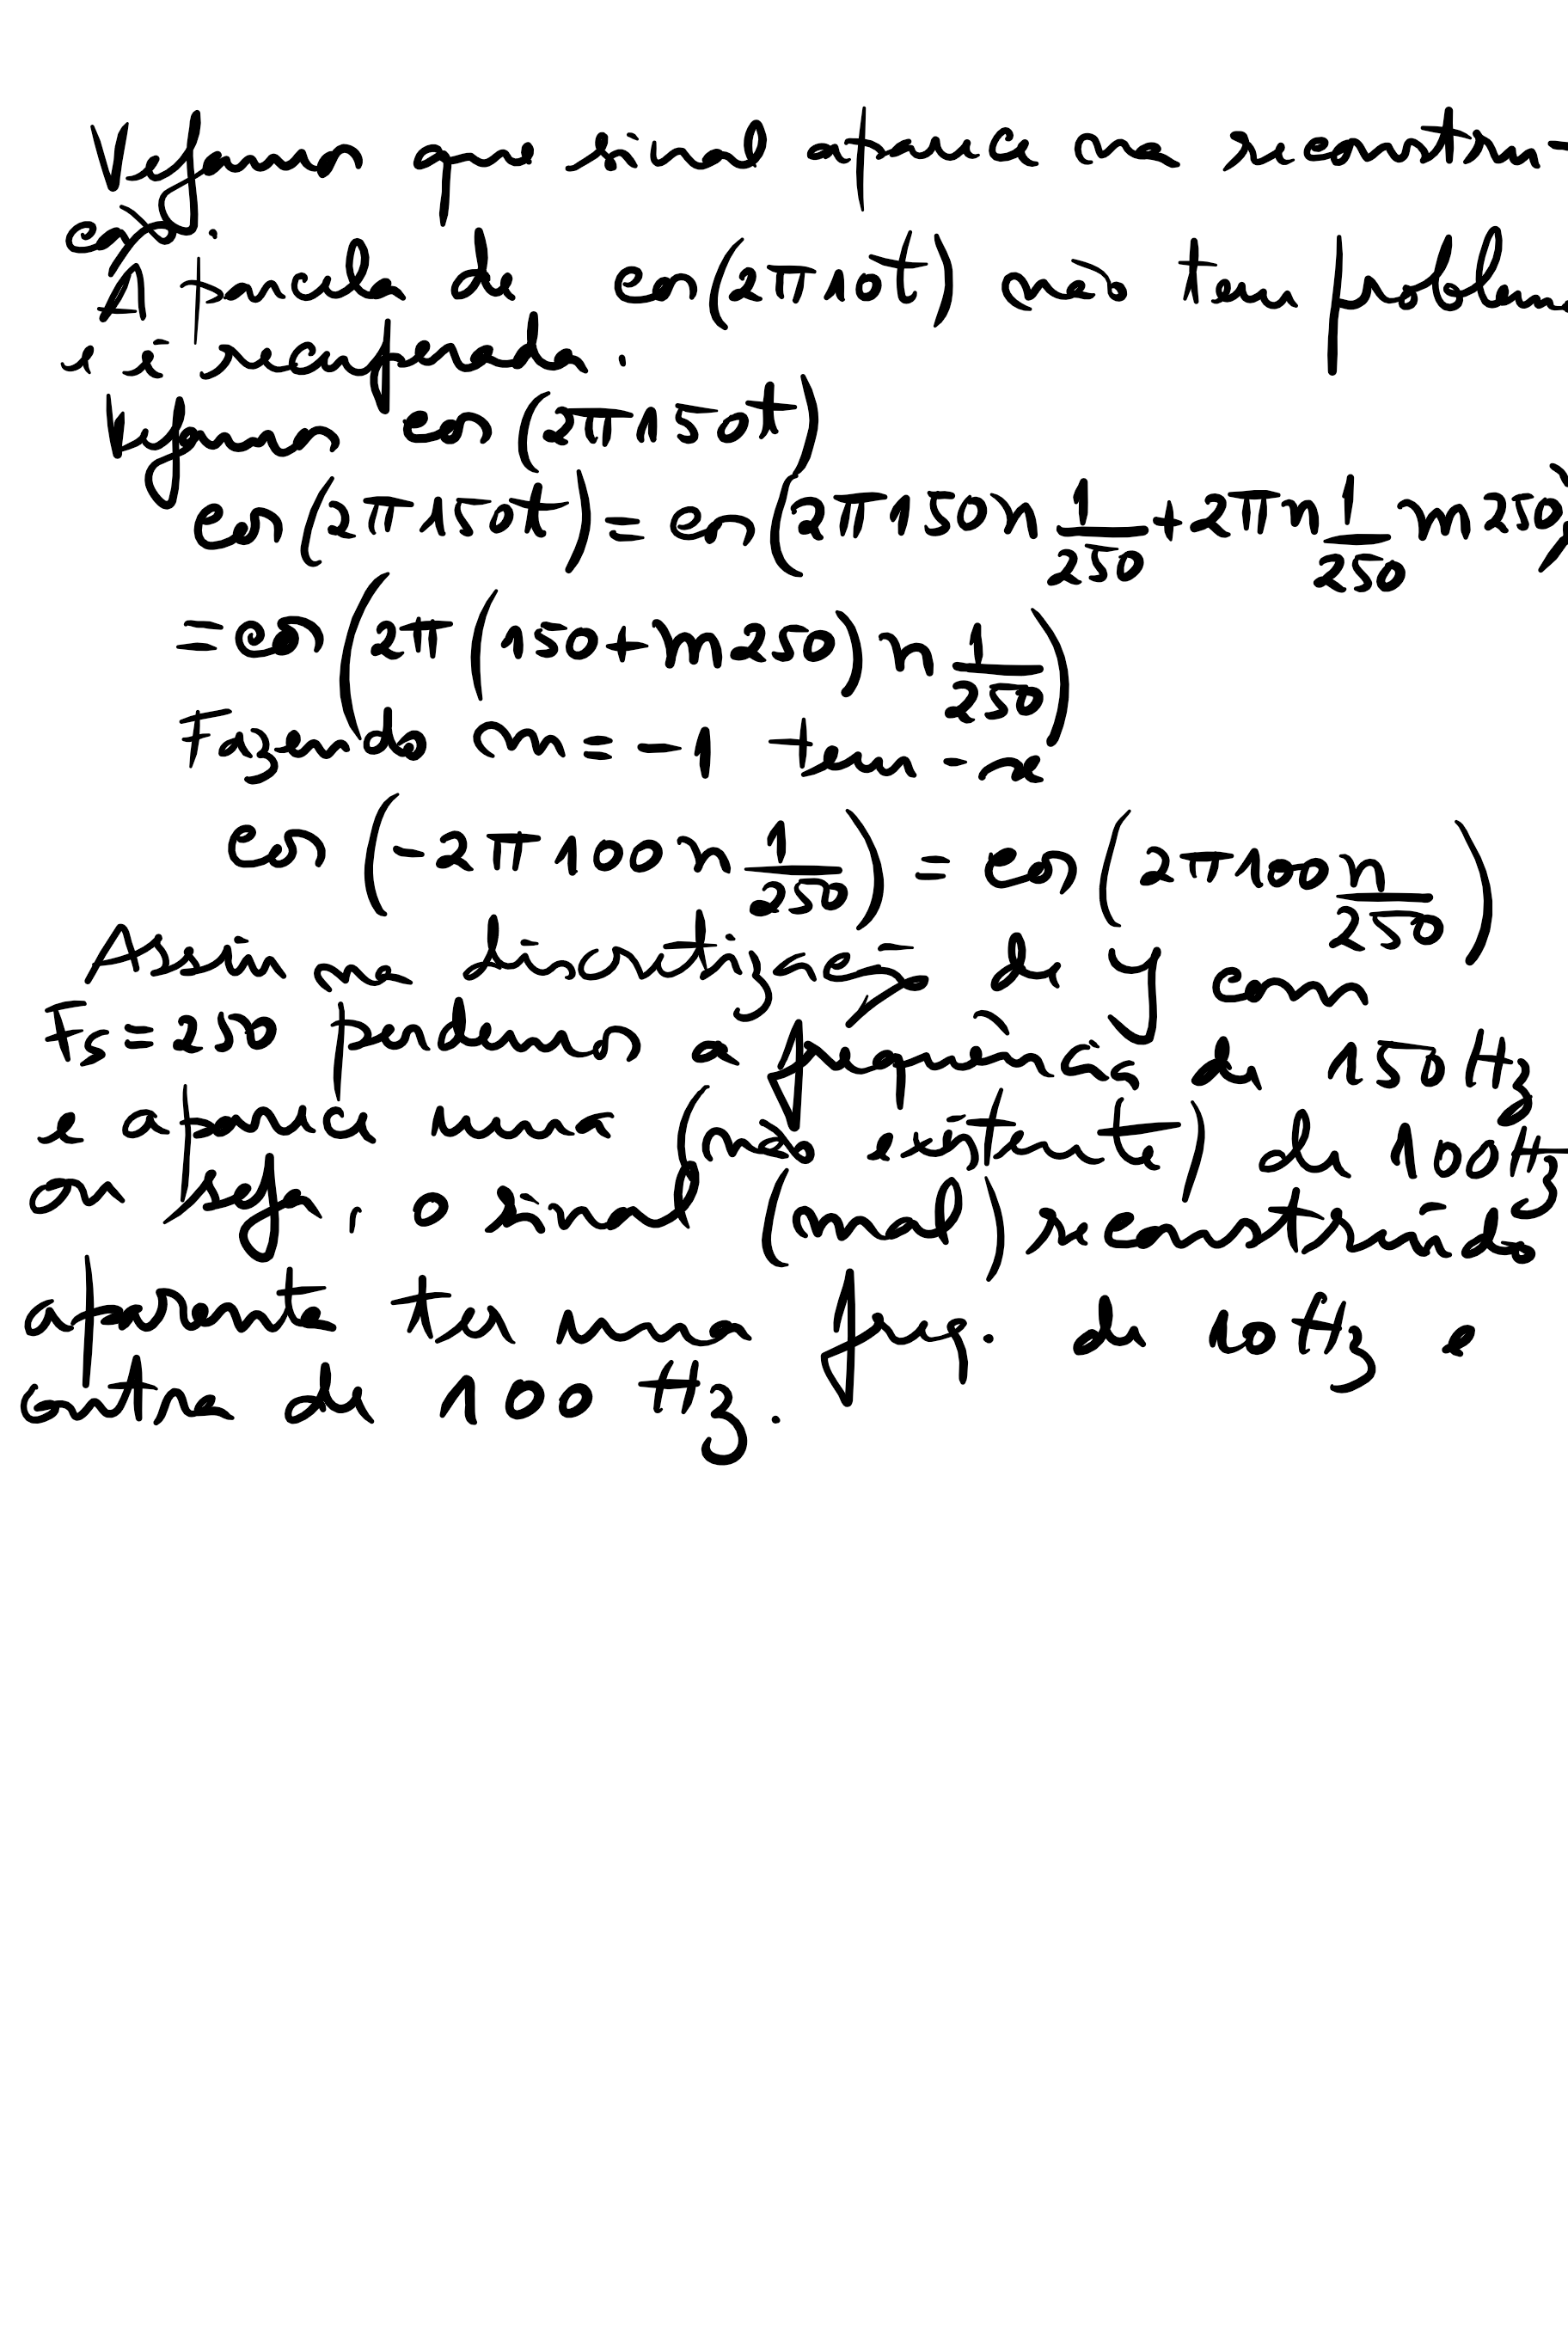 Vejamos que sinal aparece na reconstru-
ção.
A parcela de cos(2π10t) não tem problema,
irá ser recuperada.
Vejamos cos(2π150t)
cos(2π150t) = cos(2π150n 1/250 + 2πn 1/250 m250)
= cos(2π(150+m250)n 1/250)
Fazendo m=-1 tem-se
cos(-2π100n 1/250) = cos(2π100 n/250)
Assim na discretização de y com
Fs=250 perdemos a frequência de 150Hz
e aparece uma (não existente) de 100Hz
ou seja o sinal (anal) reconstruído
aparenta ter uma freq. de 10Hz e
outra de 100Hz.